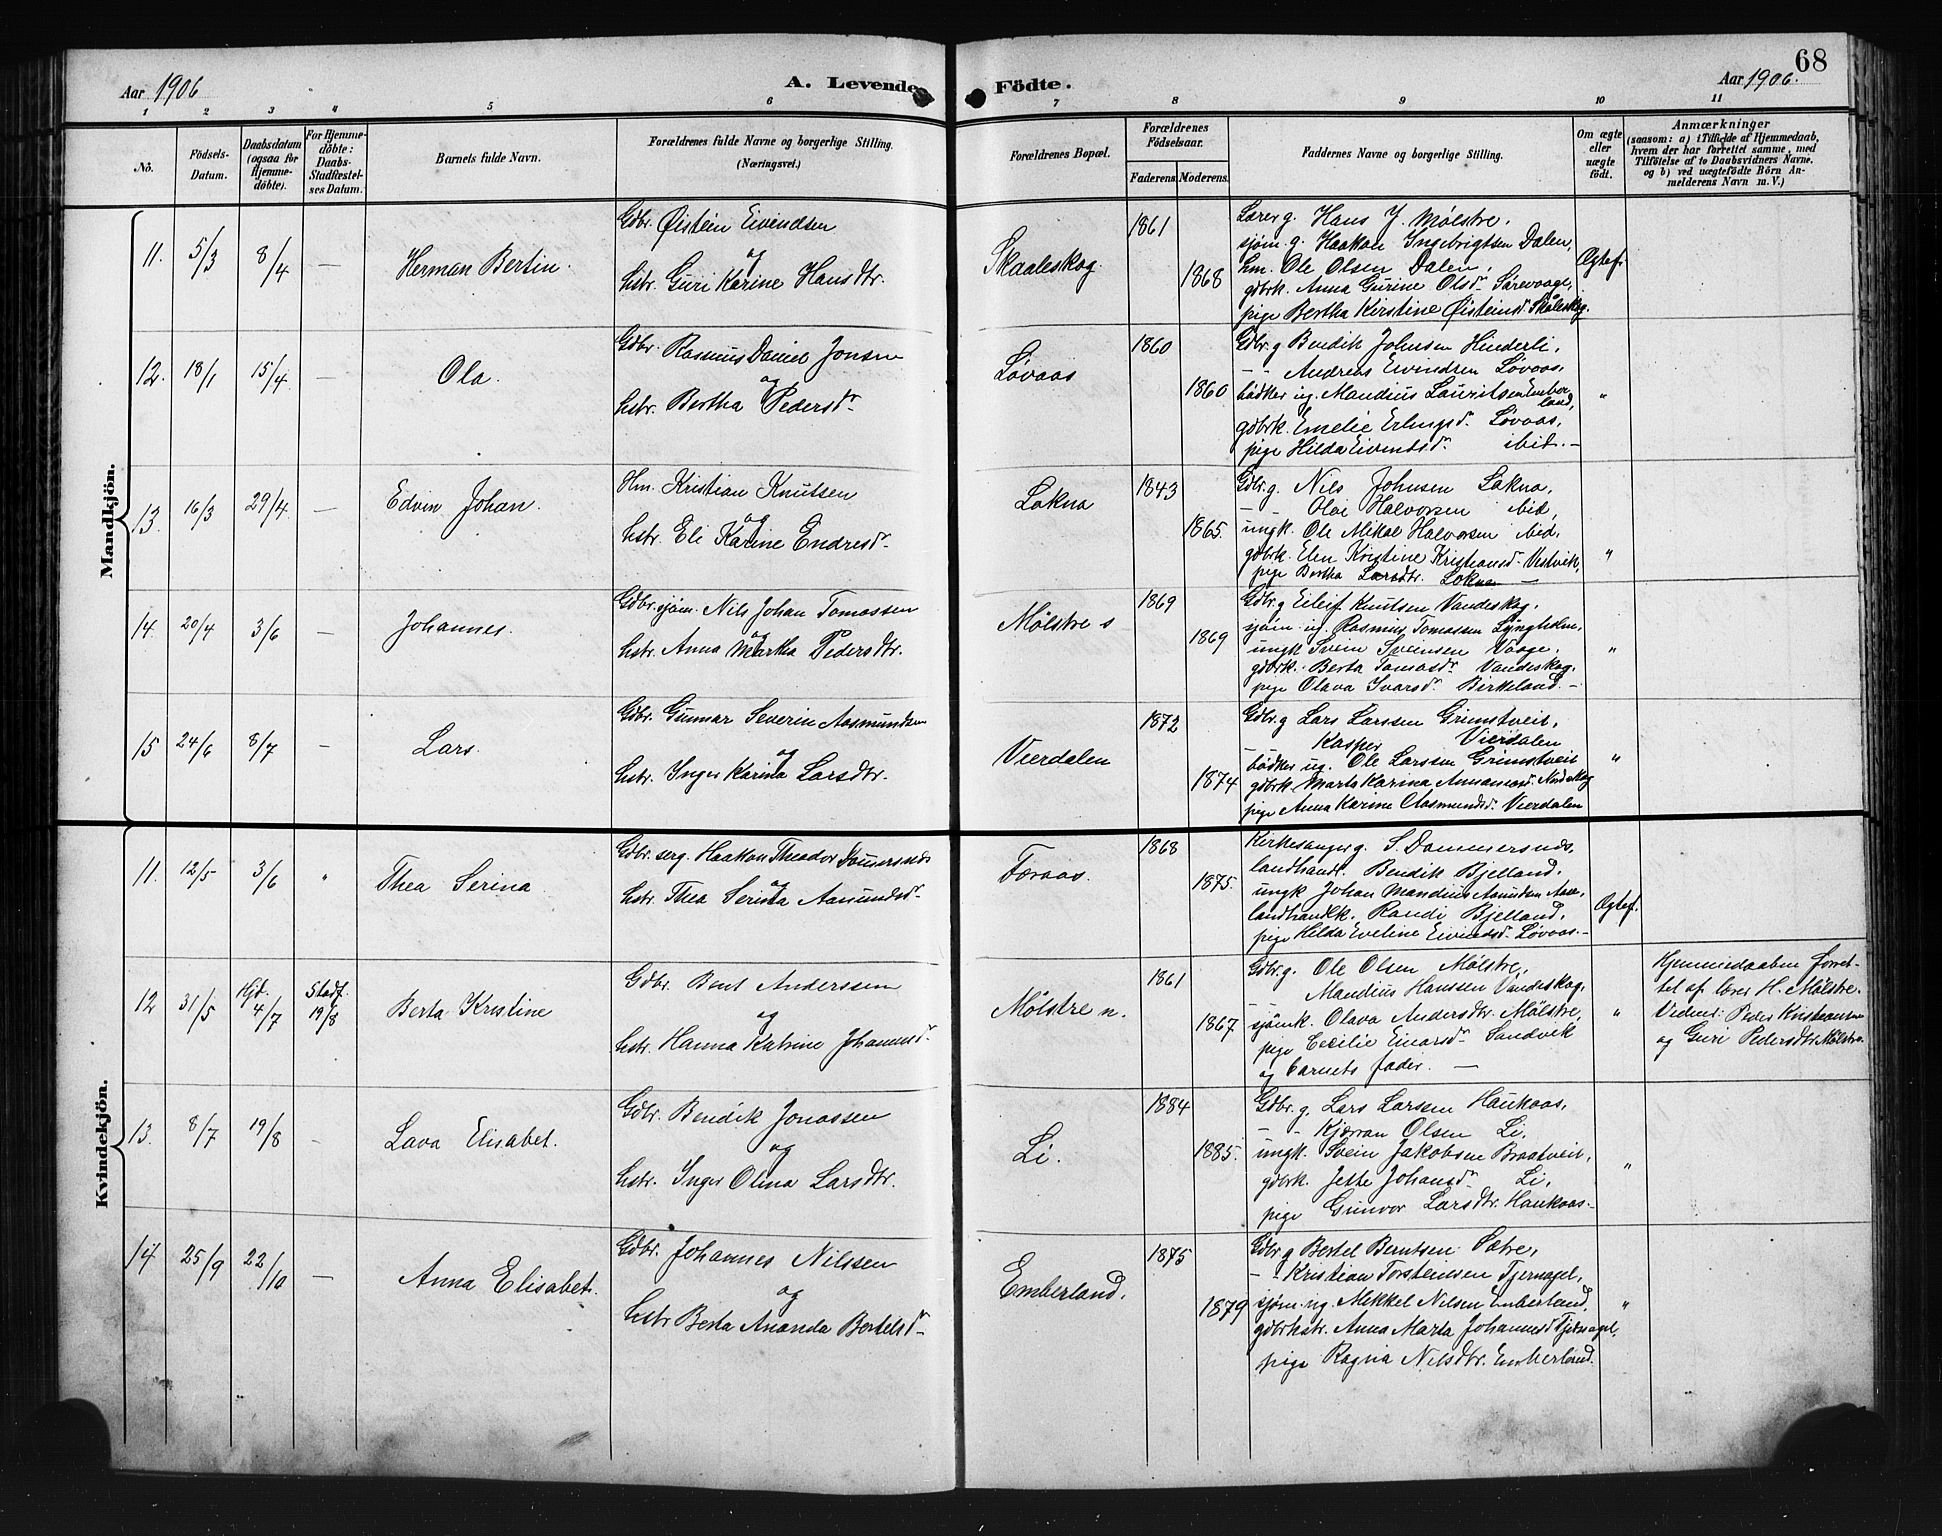 68
Aar 1906 A. Levende Födte. Aar 1906.
1 2 3 4 5 6 7 8 9 10 11
No.
Födsels-
Datum.
Daabsdatum
(ogsaa for
Hjemme-
döbte).
For Hjemme-
döbte:
Daabs-
Stadfæstel-
ses Datum.
Barnets fulde Navn.
Forældrenes fulde Navne og borgerlige Stilling.
(Næringsvei.)
Forældrenes Bopæl.
Forældrenes
Födselsaar.
Faderens. Moderens.
Faddernes Navne og borgerlige Stilling.
Om ægte
eller
uægte
födt.
Anmærkninger
(saasom: a) i Tilfælde af Hjemmedaab,
hvem der har forrettet samme, med
Tilföielse af to Daabsvidners Navne.
og b) ved uægtefödte Börn An-
melderens Navn m. V.)
Mandkjön.
11. 5/3 8/4 — Herman Bertin.
Gdbr. Øistein Eivindsen
og
hstr. Guri Karine Hansdtr.
Skaaleskog
1861
1868
Lærer g. Hans J. Mølstre,
sjøm. g. Haakon Ingebrigtsen Dalen,
hm. Ole Olsen Dalen,
gdbrk. Anna Gurine Olsd. Sørevaage,
pige Bertha Kirstine Øisteinsd. Skåleskog.
Ægtef.
12. 18/1 15/4 — Ola.
Gdbr. Rasmus Daniel Jonsen
og
hstr. Bertha Pedersdr.
Løvaas
1860
1860
Gdbr. g Bendik Johnsen Hinderli,
- - Andreas Eivindsen Løvaas,
bødker ug. Mandius Lauritsen Ember-
land,
gdbrk. Emelie Erlingsdr. Løvaas,
pige Hilda Eivindsdr. ibid. -
"
13. 16/3 29/4 — Edvin Johan.
Hm. Kristian Knutsen
og
hstr. Eli Karine Endresdr.
Lokna
1843
1865.
Gdbr. g. Nils Johnsen Lokna,
- - Oloi Halvorsen ibid,
ungk. Ole Mikal Halvorsen ibid,
gdbrk. Elen Kristine Kristiansd. Vestvik,
pige Bertha Larsdtr. Lokna —
"
14. 20/4 3/6 — Johannes.
Gdbr. sjøm. Nils Johan Tomassen
og
hstr. Anna Martha Pedersdtr.
Mølstre s
1869
1869
Gdbr. g Eilif Knutsen Vandeskog,
sjøm. ug. Rasmus Tomassen Lyngholm,
ungk. Svein Sveinsen Vaage,
gdbrk. Berta Tomasdr. Vandeskog,
pige Olava Ivarsdr. Birkeland. —
"
15 24/6 8/7 — Lars.
Gdbr. Gunnar Severin Aasmundsen
og
hstr. Inger Karina Larsdtr.
Vierdalen
1872
1874
Gdbr. g Lars Larssen Grimstveit,
— Kasper Vierdalen
bødker ug. Ole Larssen Grimstveit
gdbrk. Marta Karina
pige Anna Karine Aasmundsd. Vierdalen
"
Kvindekjön.
11. 12/5 3/6 " Thea Serina.
Gdbr. serg. Haakon Theodor
og
hstr. Thea Serina Aamundsdr.
Føraas.
1868
1875.
Kirkesanger g. S. Dommersnes,
landhandl. Bendik Bjelland,
ungk Johan Mandius
landhandlk. Randi Bjelland,
pige Hilda Eveline Eivindsd. Løvaas. —
Ægtef.
12 31/5 Hjd. 4/7 Stadf. 19/8 Berta Kristine
Gdbr. Bent Anderssen
og
hstr. Hanna Katrine Johannesdr.
Mølstre n.
1861
1867
Gdbr. g. Ole Olsen Mølstre,
Mandius Hanssen Vandeskog,
sjømk. Olava Andersdtr. Mølstre,
pige Cecilie Einarsdr. Sandvik
og barnets fader. —
"
Hjemmedaaben forret-
tet af lærer H. Mølstre.
Vidner: Peder Kristiansen
og Guri Pedersdtr. Mølstre.
13. 8/7 19/8 - Lava Elisabet.
Gdbr. Bendik Jonassen
og
hstr. Inger Olina Larsdtr.
Li.
1884
1885.
Gdbr. g. Lars Larssen Haukaas,
- - Kjærran Olsen Li,
ungk. Svein Jakobsen Braatveit,
gdbrk. Jette Johansdr. Li,
pige Gunvor Larsdtr. Haukaas. —
"
14 25/9 22/10 — Anna Elisabet.
Gdbr. Johannes Nilssen
og
hstr Berta Ananda Bertelsdr.
Emberland.
1875
1879
Gdbr g Bertel Berntsen Sætre,
- - Kristian Torsteinsen Tjernagel,
sjøm. ug. Mikkel Nilsen Emberland,
gdbrkstr. Anna Marta Johannesd Tjernagel,
pige Ragna Nilsdtr. Emberland.
"